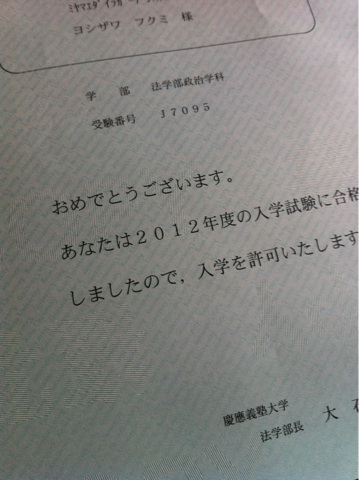 ヨシザワ フクミ 様
学 部 法学部政治学科
受験番号 17095
おめでとうございます。
あなたは2012年度の入学試験に合格
しましたので,入学を許可いたします
慶應義塾大学
法学部長 大石